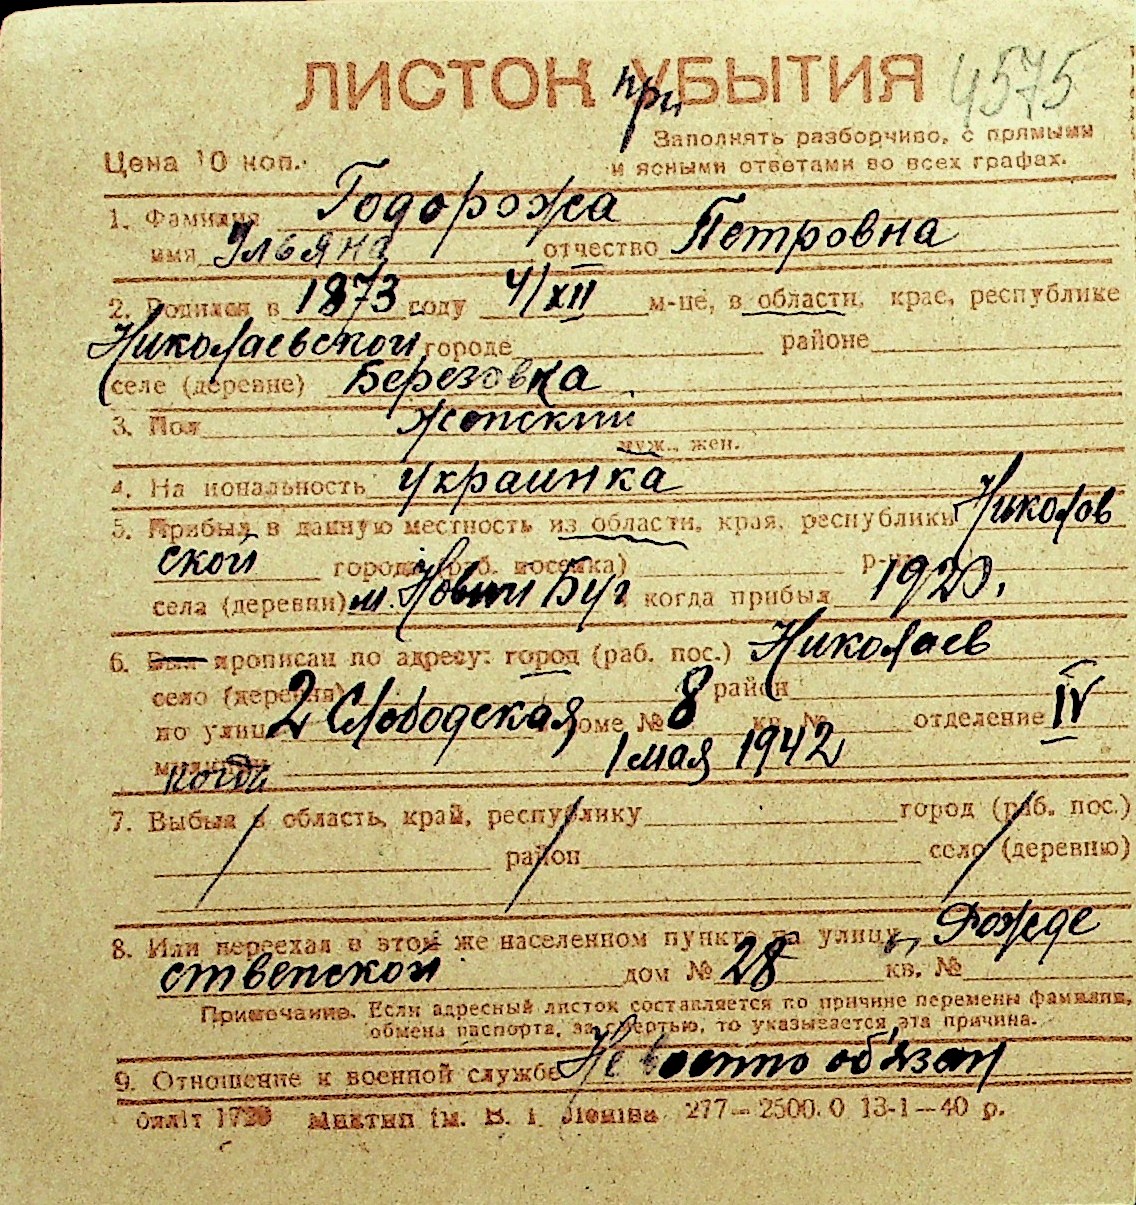 ЛИСТОК при УБЫТИЯ 4575
Заполнять разборчиво, с прямыми
Цена 10 коп. и ясными ответами во всех графах.
1. Фамилия Годорожа
имя Ульяна отчество Петровна
2. Родился в 1873 году 4/XII м-це, в области, крае, республике
Николаевской городе районе
селе (деревне) Березовка
3. Пол женский
муж., жен.
4. На иональность украинка
5. Прибыл в данную местность из области, края, республики Николов
ской города (раб. поселка) р-на
села (деревни) м. Новый Буг когда прибыл 1920.
6. Был прописан по адресу: город (раб. пос.) Николаев
село (деревня) район
по улице 2 Слободская доме № 8 кв. № отделение IV
милиции когда 1 мая 1942
7. Выбыл в область, край, республику город (раб. пос.)
район село (деревню)
8. Или переехал в этом же населенном пункте на улицу Рожде
ственской дом № 28 кв. №
Примечание. Если адресный листок составляется по причине перемены фамилии,
обмена паспорта, за смертью, то указывается эта причина.
9. Отношение к военной службе Не военно об'язан
бл літ 1720 Миктип ім. В. І. Леніна 277—2500. О 13-1—40 р.